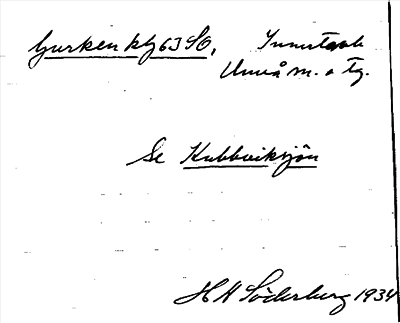 Gurken kbg 63 SO, Innertavle
Umeå m. o tg.
Se Kubbviksjön
H A Söderberg 1934